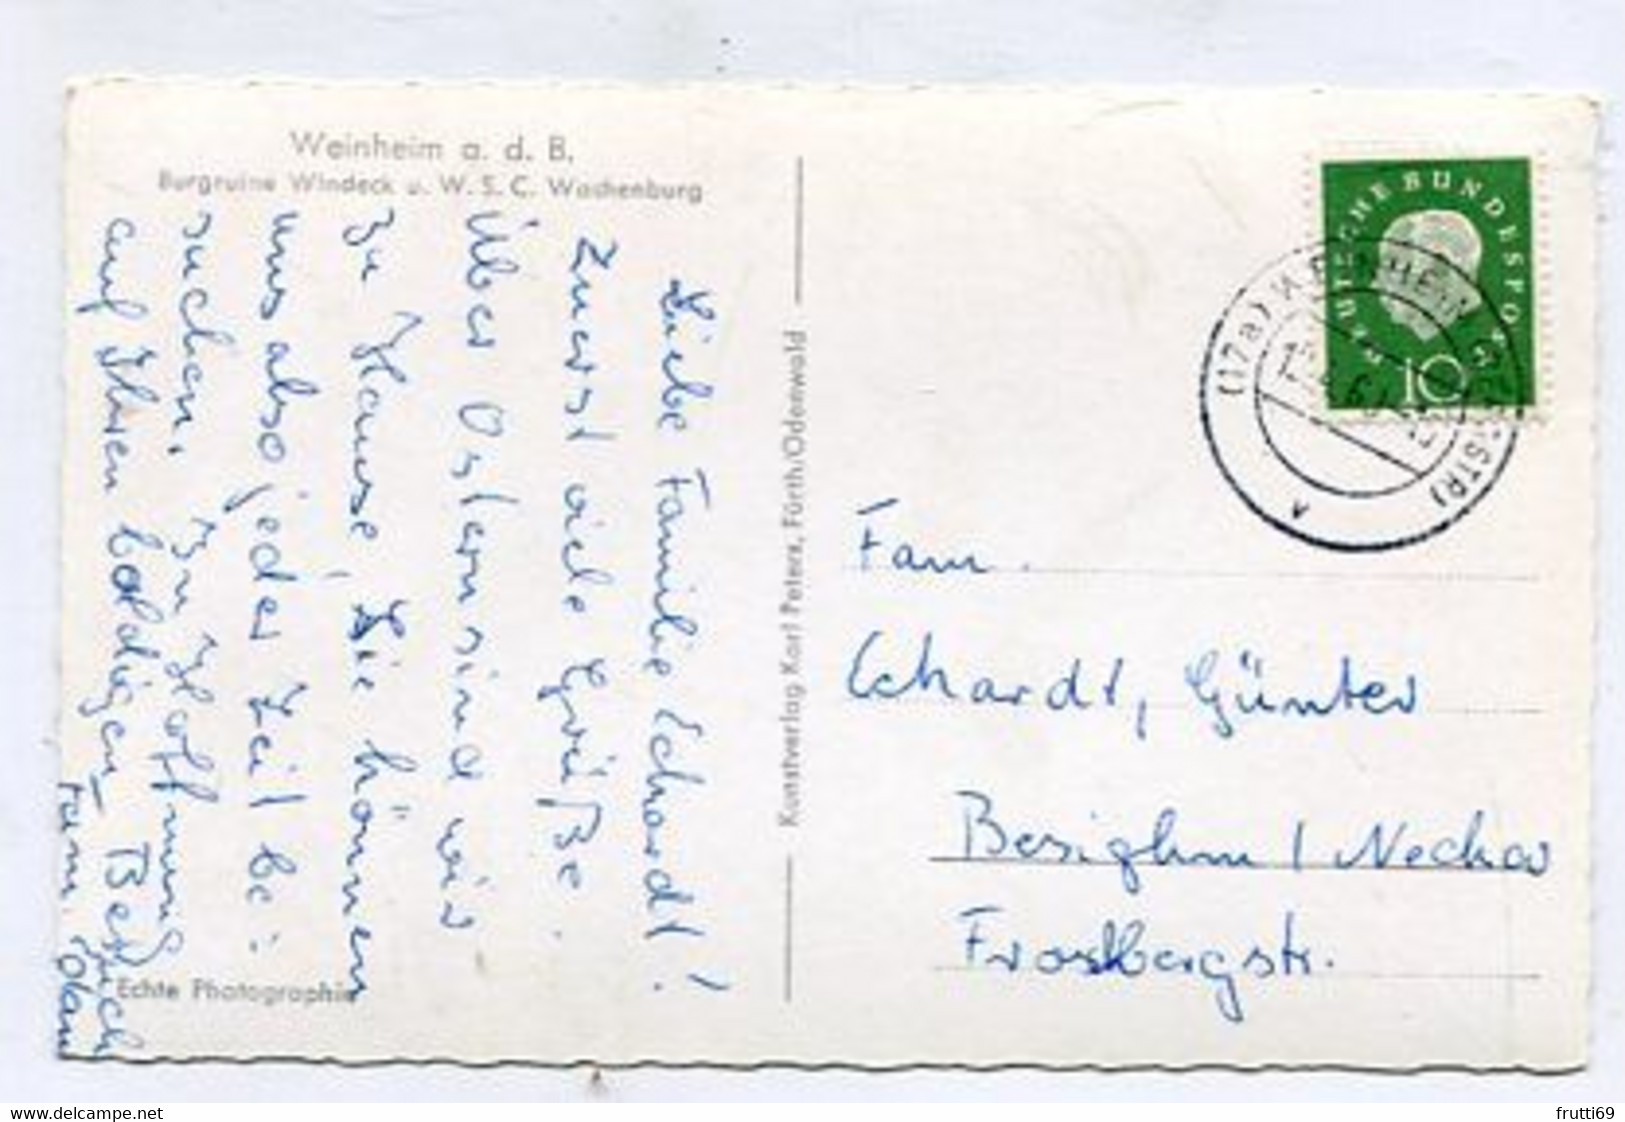 Weinheim a. d. B.
Burgruine Windeck u. W. S. C. Wachenburg
Liebe Familie Echardt!
Zuerst viele Grüße.
Über Ostern sind wir
zu Hause, Sie können
uns also jeder Zeit be-
suchen. In Hoffnung
auf Ihren baldigen Besuch
Fam. Olam
Echte Photographie
Kunstverlag Karl Peters, Fürth/Odenwald
DEUTSCHE BUNDESPOST
10
(17a) WEINHEIM (BERGSTR)
Fam.
Echardt, Günter
Besighm / Neckar
Frostbergstr.
delcampe.net
frutti69